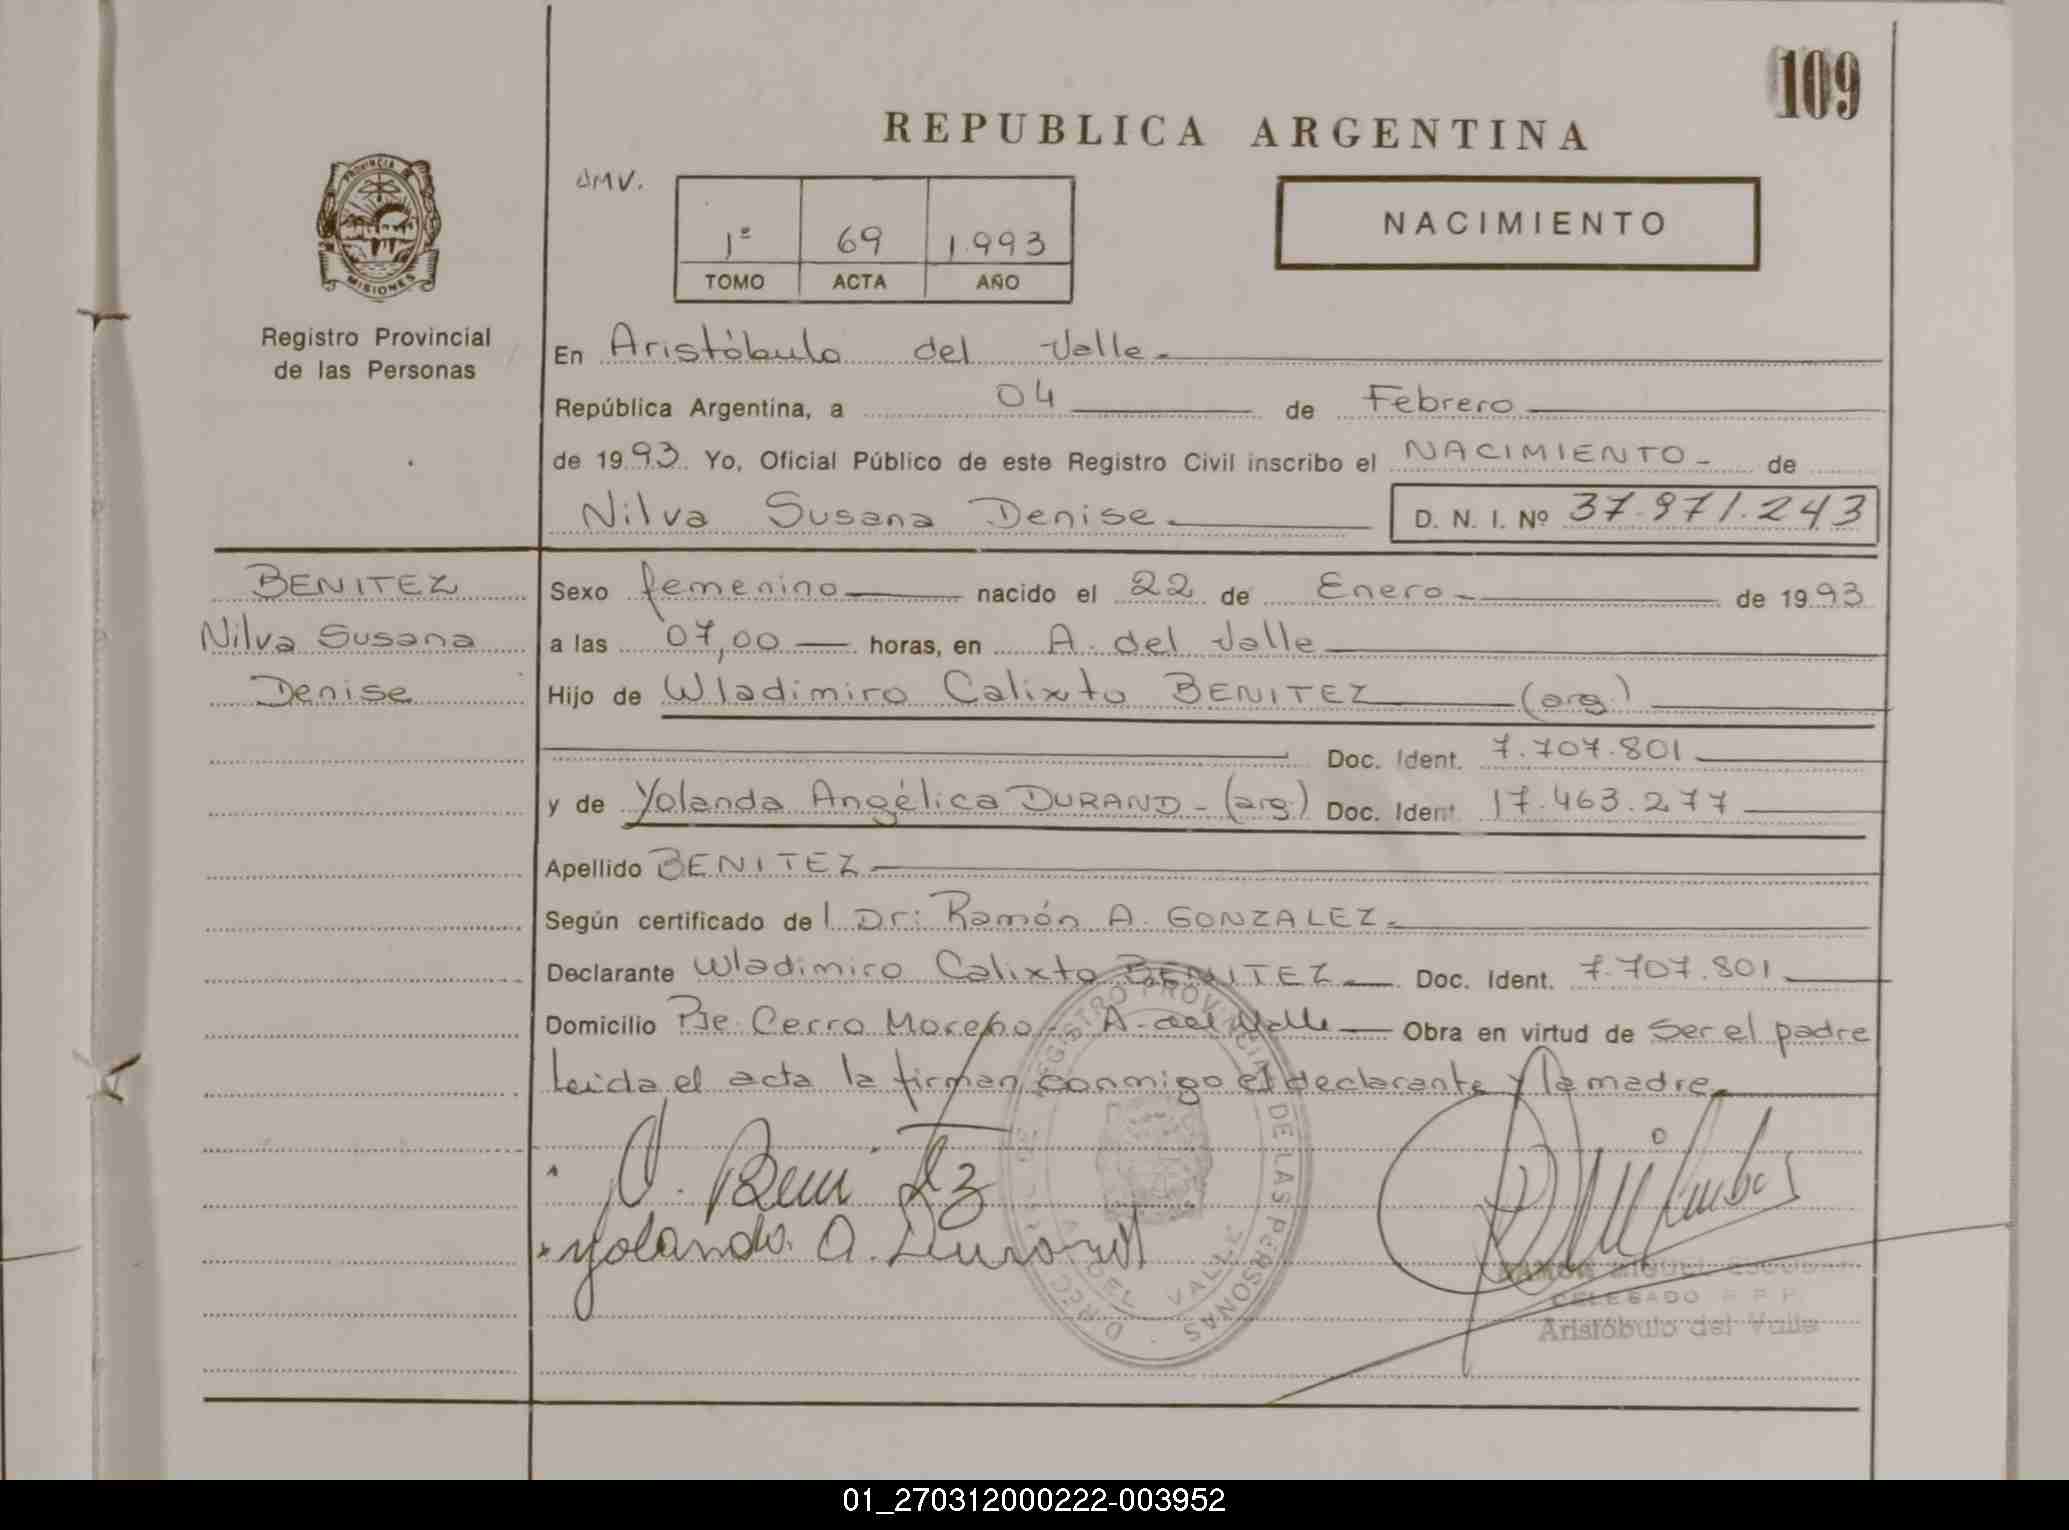 109
REPUBLICA ARGENTINA
PROVINCIA DE
MISIONES
Registro Provincial
de las Personas
NACIMIENTO
1º 69 1.993
TOMO ACTA AÑO
En Aristóbulo del Valle.-
República Argentina, a 04 de Febrero
de 1993. Yo, Oficial Público de este Registro Civil inscribo el NACIMIENTO- de
Nilva Susana Denise.- D. N. I. Nº 37.971.243
BENITEZ
Nilva Susana
Denise
Sexo femenino nacido el 22 de Enero- de 1993
a las 07,00 horas, en A. del Valle
Hijo de Wladimiro Calixto BENITEZ (arg.)
Doc. Ident. 7.707.801
y de Yolanda Angélica DURAND-(arg.) Doc. Ident. 17.463.277
Apellido BENITEZ
Según certificado del Dr: Ramón A. GONZALEZ.-
Declarante Wladimiro Calixto BENITEZ Doc. Ident. 7.707.801
Domicilio Pje. Cerro Moreno- A. del Valle Obra en virtud de ser el padre
Leida el acta la firman conmigo el declarante y la madre.
Benitez
Yolanda A. Durand
REGISTRO PROVINCIAL DE LAS PERSONAS
A. DEL VALLE
RAMON MIGUEL
DELEGADO R.P.P.
Aristóbulo del Valle
01_270312000222-003952